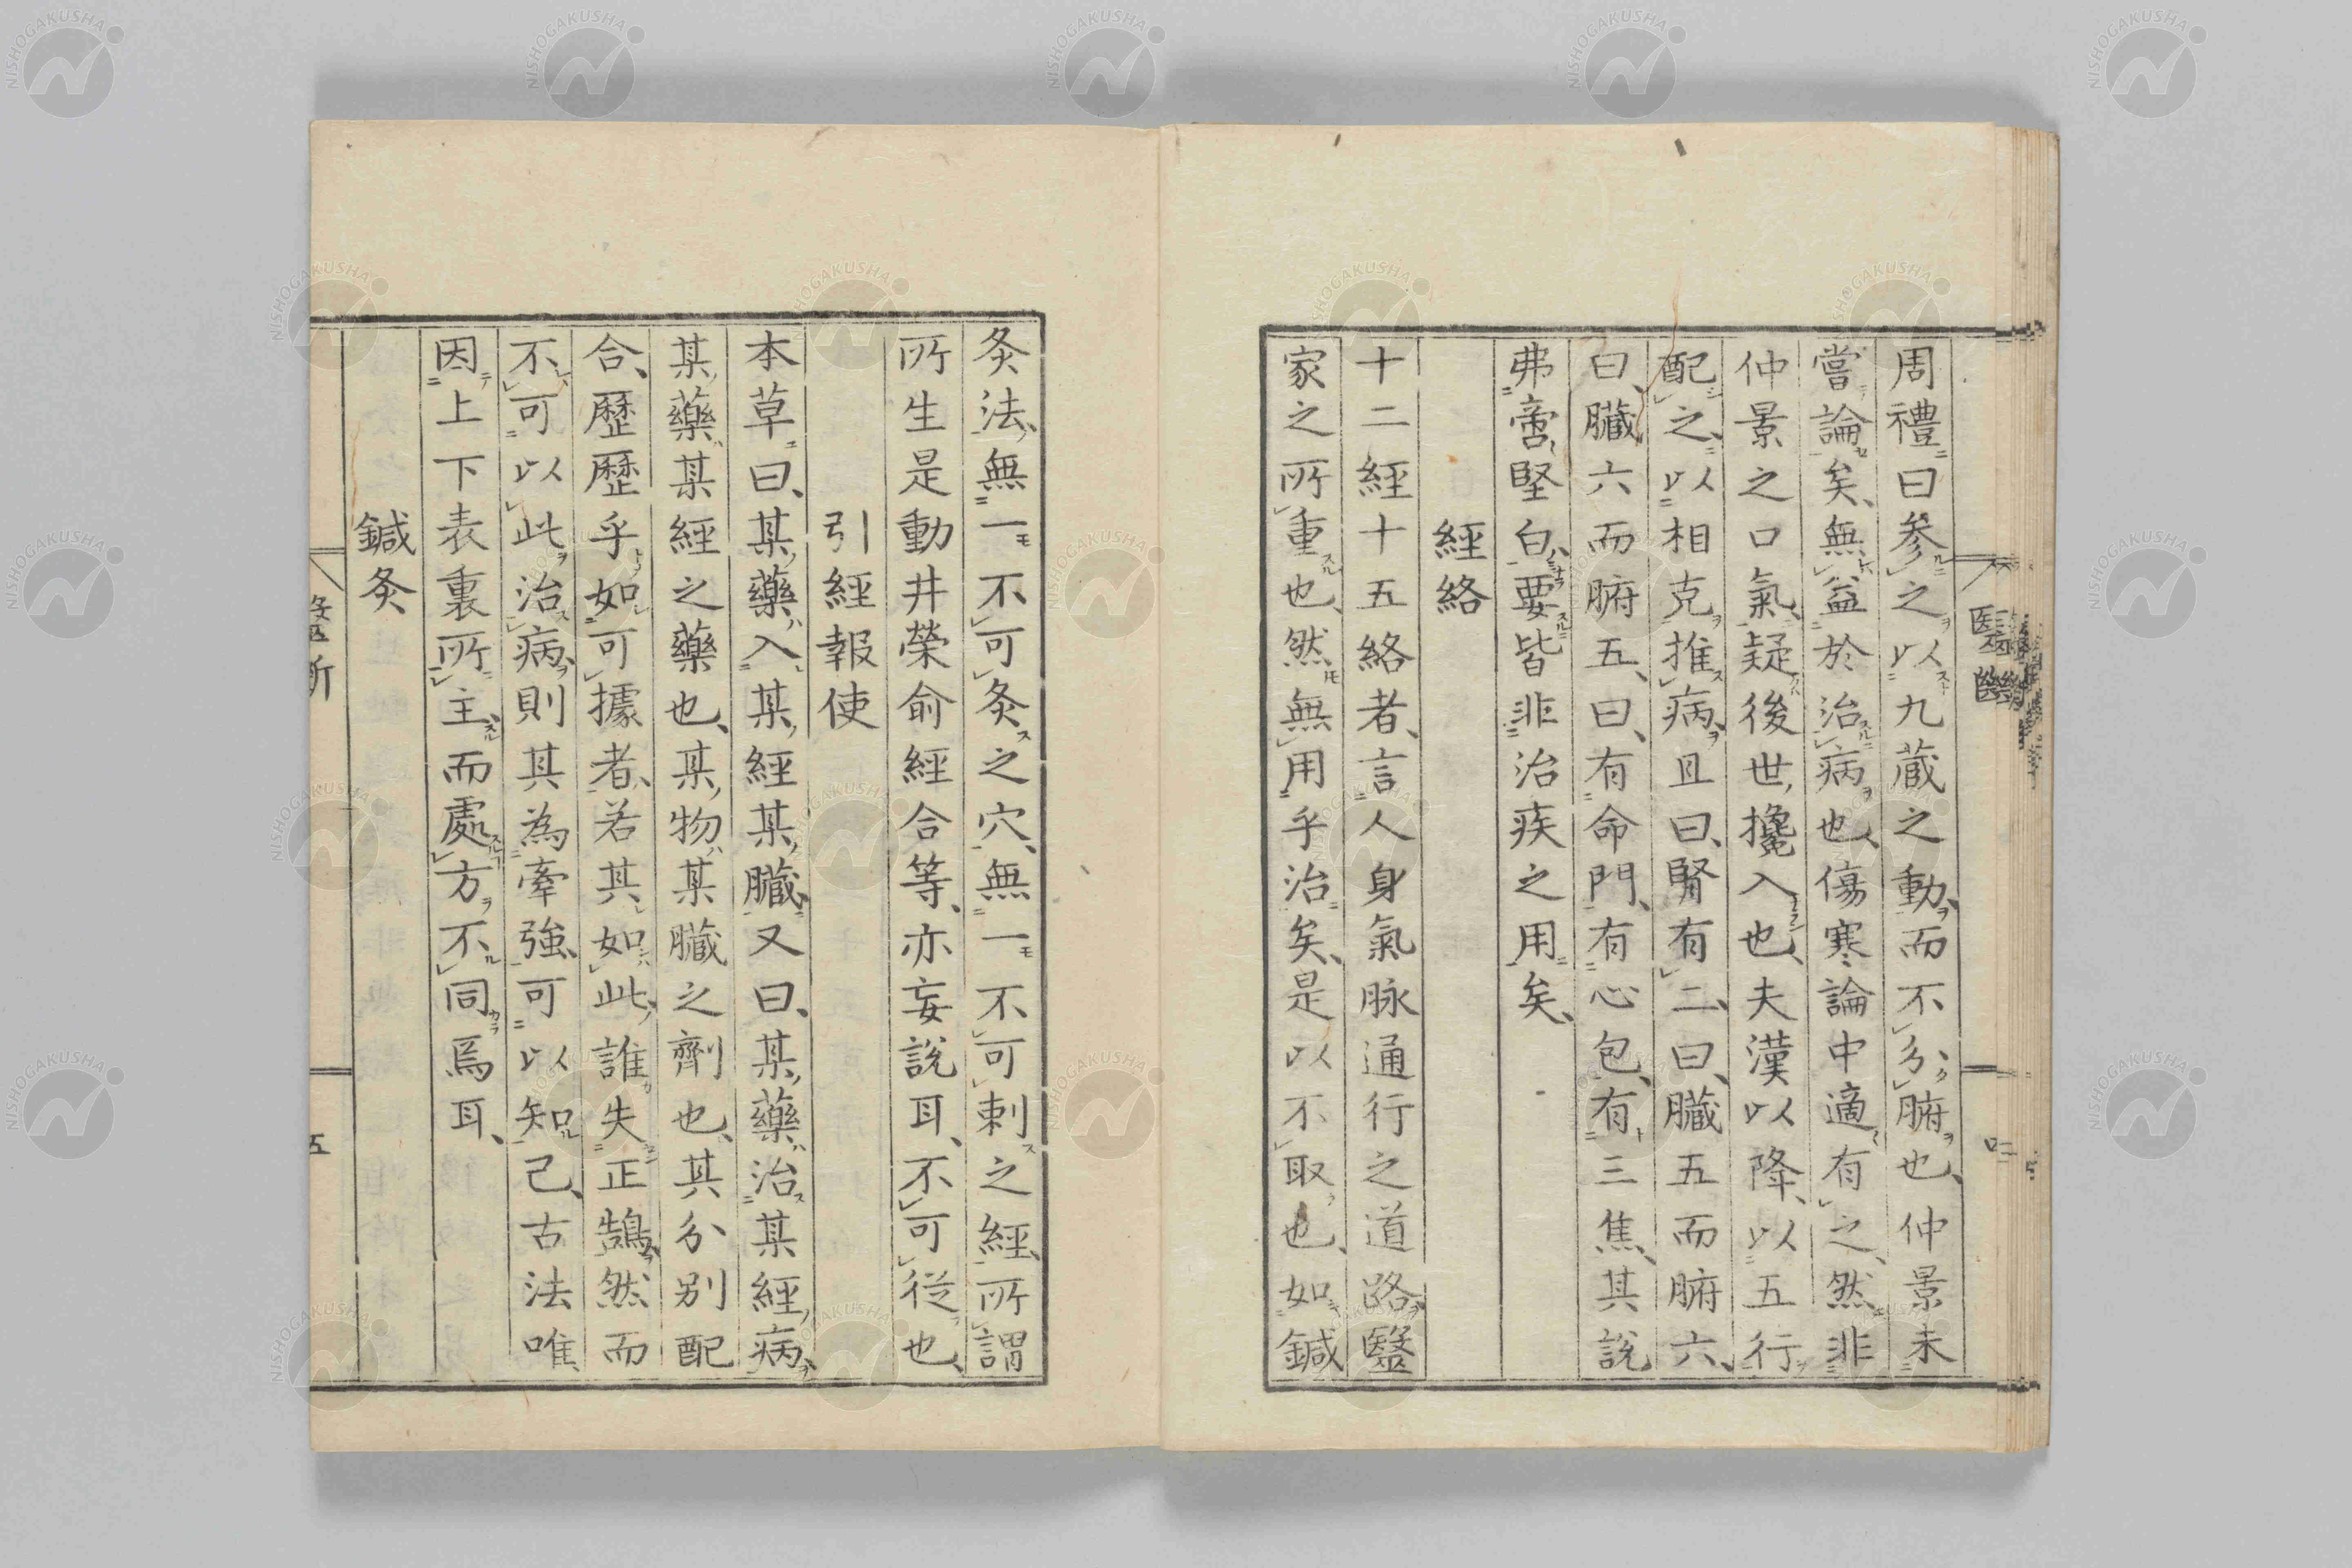 周禮曰参之以九蔵之動、而不分腑也、仲景未
嘗論矣、無益於治病也、傷寒論中適有之、然非
仲景之口氣、疑後世攙入也、夫漢以降、以五行
配之、以相克推病、且曰、腎有二、曰、臓五而腑六、
曰、臓六而腑五、曰、有命門、有心包、有三焦、其說
弗啻堅白、要皆非治疾之用矣、
經絡
十二經十五絡者、言人身氣脉通行之道路、醫
家之所重也、然無用乎治矣、是以不取也、如鍼
灸法、無一不可灸之穴、無一不可刺之經、所謂
所生是動井榮俞經合等、亦妄說耳、不可從也、
引經報使
本草曰、某藥入某經某臓、又曰、某藥治某經病、
某藥某經之藥也、某物某臓之劑也、其分別配
合、歷歷乎如可據者、若其如此、誰失正鵠、然而
不可以此治病、則其為牽強、可以知已、古法唯
因上下表裏所主、而處方不同焉耳、
鍼灸
五
NISHOGAKUSHA